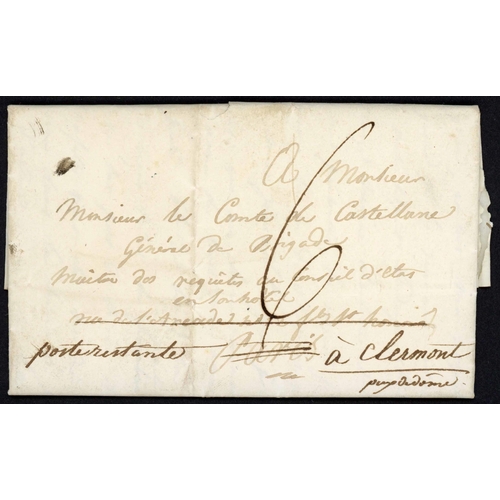 A Monsieur
6
Monsieur le Comte de Castellane
Général de Brigade
Maître des requêtes au Conseil d'état
en son hotel
rue de l'Arcade
poste restante Paris à Clermont
puy de dôme.